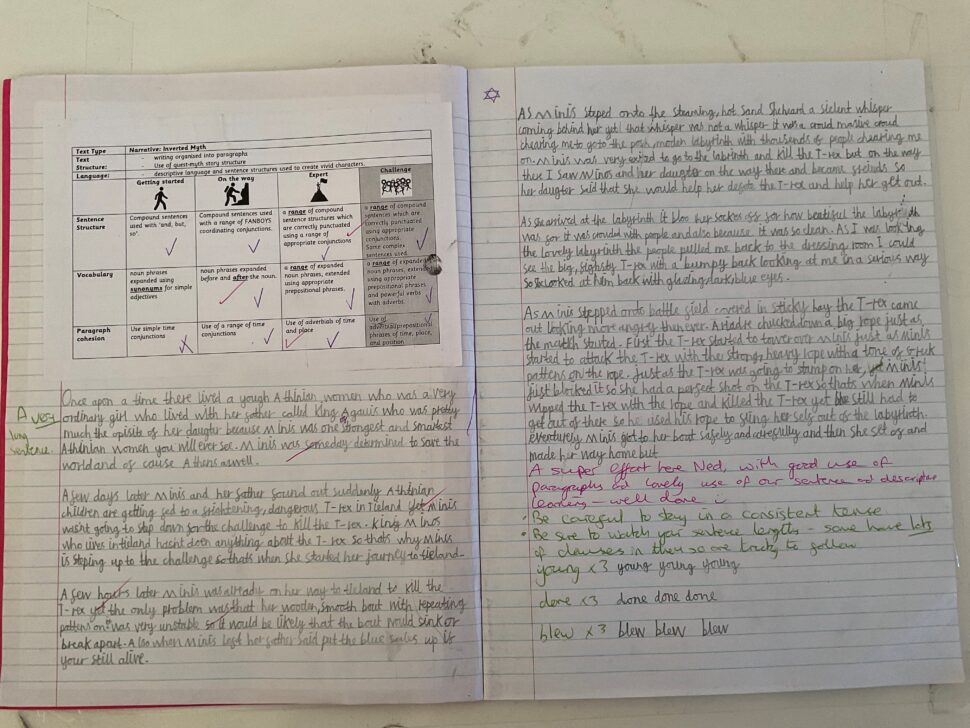 Text Type
Narrative: Inverted Myth
Text Structure:
- writing organised into paragraphs
- Use of quest-myth story structure
Language:
- descriptive language and sentence structures used to create vivid characters.
Getting started
On the way
Expert
Challenge
Sentence Structure
Compound sentences used with 'and, but, so'.
Compound sentences used with a range of FANBOYS coordinating conjunctions.
a range of compound sentence structures which are correctly punctuated using a range of appropriate conjunctions
a range of compound sentences which are correctly punctuated using appropriate conjunctions. Some complex sentences used.
Vocabulary
noun phrases expanded using synonyms for simple adjectives
noun phrases expanded before and after the noun.
a range of expanded noun phrases, extended using appropriate prepositional phrases.
a range of expanded noun phrases, extended using appropriate prepositional phrases and powerful verbs with adverbs.
Paragraph cohesion
Use simple time conjunctions
Use of a range of time conjunctions
Use of adverbials of time and place
Use of adverbial/prepositional phrases of time, place, and position.
A very
long
sentence.
Once upon a time there lived a yough Athinian, women who was a very
ordinary girl who lived with her father called King Aganis who was pretty
much the opisite of her daugter because Minis was one strongest and smartest
Athinian women you will ever see. Minis was someday determined to save the
world and of cause Athens aswell.
A few days later Minis and her father found out suddenly Athinian
children are getting fed to a frightening, dangerous T-rex in Tieland yet Minis
wasnt going to step down for the challenge to kill the T-rex. King Minos
who lives in tieland hasnt doen anything about the T-rex so thats why Minis
is steping up to the challenge so thats when she started her journey to tieland.
A few hours later Minis was already on her way to tieland to kill the
T-rex yet the only problem was that her wooden, smooth boat with repeating
pattens on was very unstable so it would be likely that the boat would sink or
break apart. Also when Minis left her father said put the blue sails up if
your still alive.
As Minis steped onto the steaming, hot sand She heard a sielent whisper
coming behind her yet that whisper was not a whisper it was a croud masive croud
chearing me to go to the posh, moden labyrinth with thousends of people chearing me
on. Minis was very exited to go to the labrinth and kill the T-rex but on the way
there I saw Minos and her daughter on the way there and became freinds so
her daughter said that she would help her defete the T-rex and help her get out.
As she arrived at the labyrinth it bloe her sockes off for how beatiful the labyrinth
was for it was crouded with people and also because it was so clean. As I was looking
the lovely labyrinth the people pulled me back to the dressing room I could
see the big, T-rex with a bumpy back looking at me in a serious way
So she looked at him back with glazing dark blue eyes.
As Minis stepped onto battle field covered in sticky hay the T-rex came
out looking more angry than ever. Ariadne chucked down a big rope just as
the match started. First the T-rex started to tower over Minis just as Minis
started to attack the T-rex with the strong, heavy rope with a tone of Greek
pattens on the rope. just as the T-rex was going to stamp on her, yet Minis
just blocked it so she had a perfect shot on the T-rex so thats when Minis
wipped the T-rex with the rope and killed the T-rex yet still had to
get out of there so he used his rope to sling her self out of the labyrinth.
eventurely Minis got to her boat safely and carefully and then she set of and
made her way home but
A super effort here Ned, with good use of
paragraphs and lovely use of our sentence and descriptive
learning – well done :)
• Be careful to stay in a consistent tense
• Be sure to watch your sentence lengths - some have lots
of clauses in them so are tricky to follow
young x3 young young young
done x3 done done done
blew x3 blew blew blew